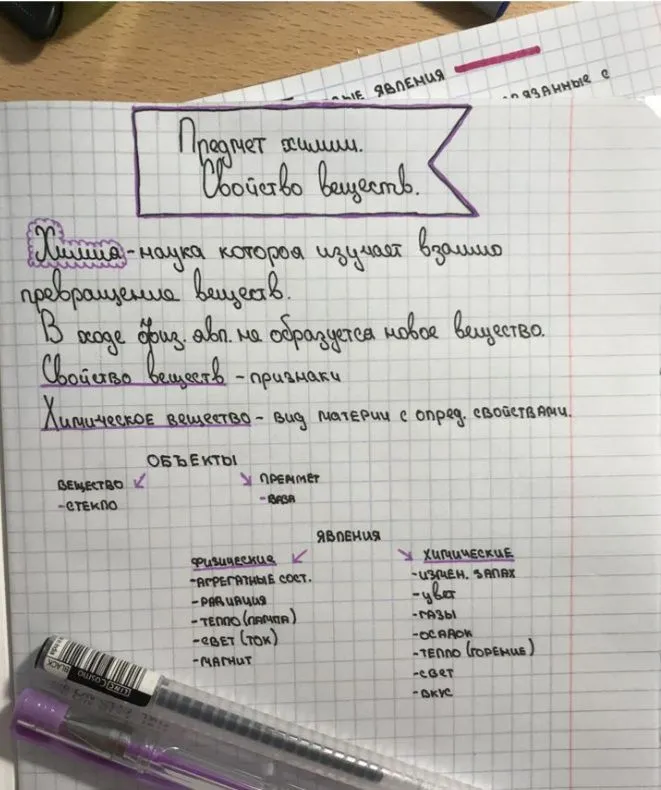 ЫЕ ЯВЛЕНИЯ
ЯЗАННЫЕ С
Предмет химии.
Свойство веществ.
Химия - наука которая изучает взаимо
превращение веществ.
В ходе физ. явл. не образуется новое вещество.
Свойство веществ - признаки
Химическое вещество - вид материи с опред. свойствами.
ОБЪЕКТЫ
ВЕЩЕСТВО ПРЕДМЕТ
- СТЕКЛО - ВАЗА
ЯВЛЕНИЯ
ФИЗИЧЕСКИЕ ХИМИЧЕСКИЕ
- АГРЕГАТНЫЕ СОСТ. - ИЗМЕН. ЗАПАХ
- РАДИАЦИЯ - ЦВЕТ
- ТЕПЛО (ЛАМПА) - ГАЗЫ
- СВЕТ (ТОК) - ОСАДОК
- МАГНИТ - ТЕПЛО (ГОРЕНИЕ)
- СВЕТ
- ВКУС
BLACK
LINC Cosmo